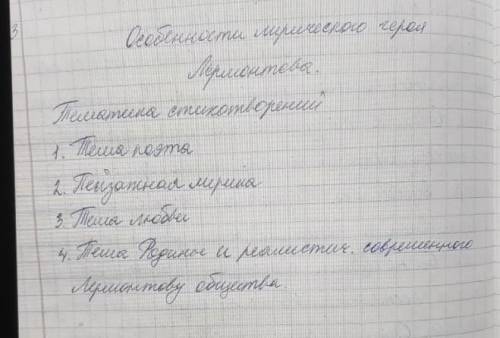 Особенности лирического героя
Лермонтова.
Тематика стихотворений
1. Тема поэта
2. Пейзажная лирика
3. Тема любви
4. Тема Родины и реалистич. современного
Лермонтову общества.